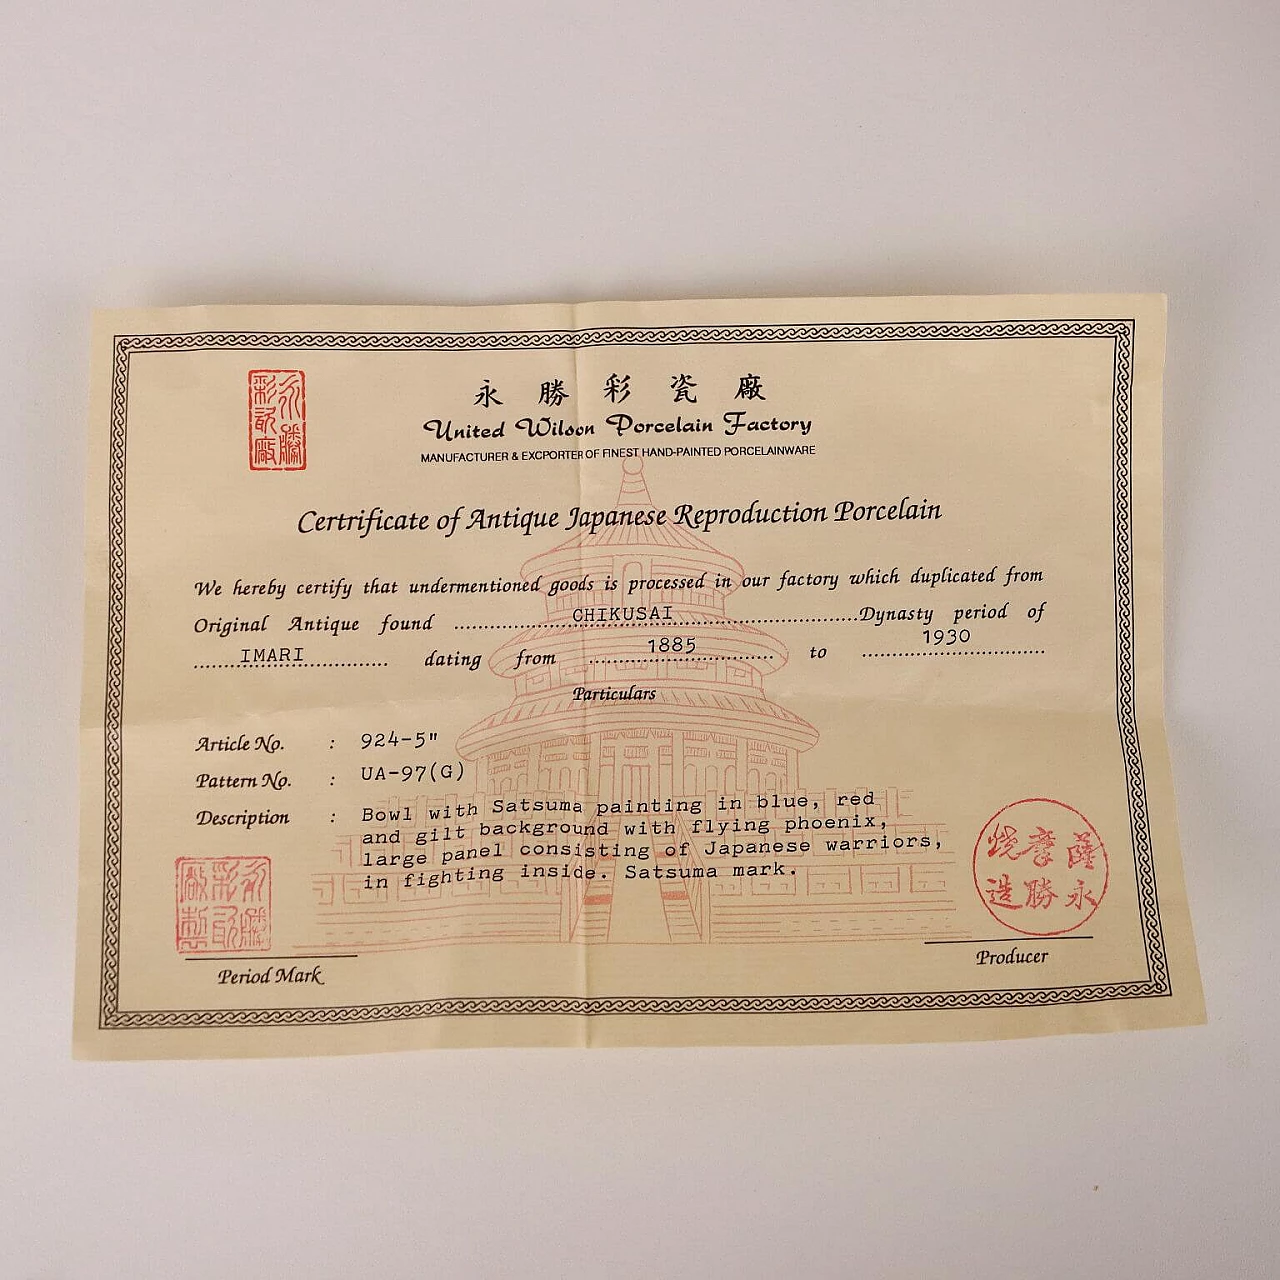 永勝彩瓷廠
United Wilson Porcelain Factory
MANUFACTURER & EXCPORTER OF FINEST HAND-PAINTED PORCELAINWARE
Certrificate of Antique Japanese Reproduction Porcelain
We hereby certify that undermentioned goods is processed in our factory which duplicated from
Original Antique found ........ CHIKUSAI ........ Dynasty period of
IMARI ........ dating from ........ 1885 ........ to ........ 1930
Particulars
Article No. : 924-5"
Pattern No. : UA-97(G)
Description : Bowl with Satsuma painting in blue, red
and gilt background with flying phoenix,
large panel consisting of Japanese warriors,
in fighting inside. Satsuma mark.
薩摩燒
永勝造
Period Mark
Producer